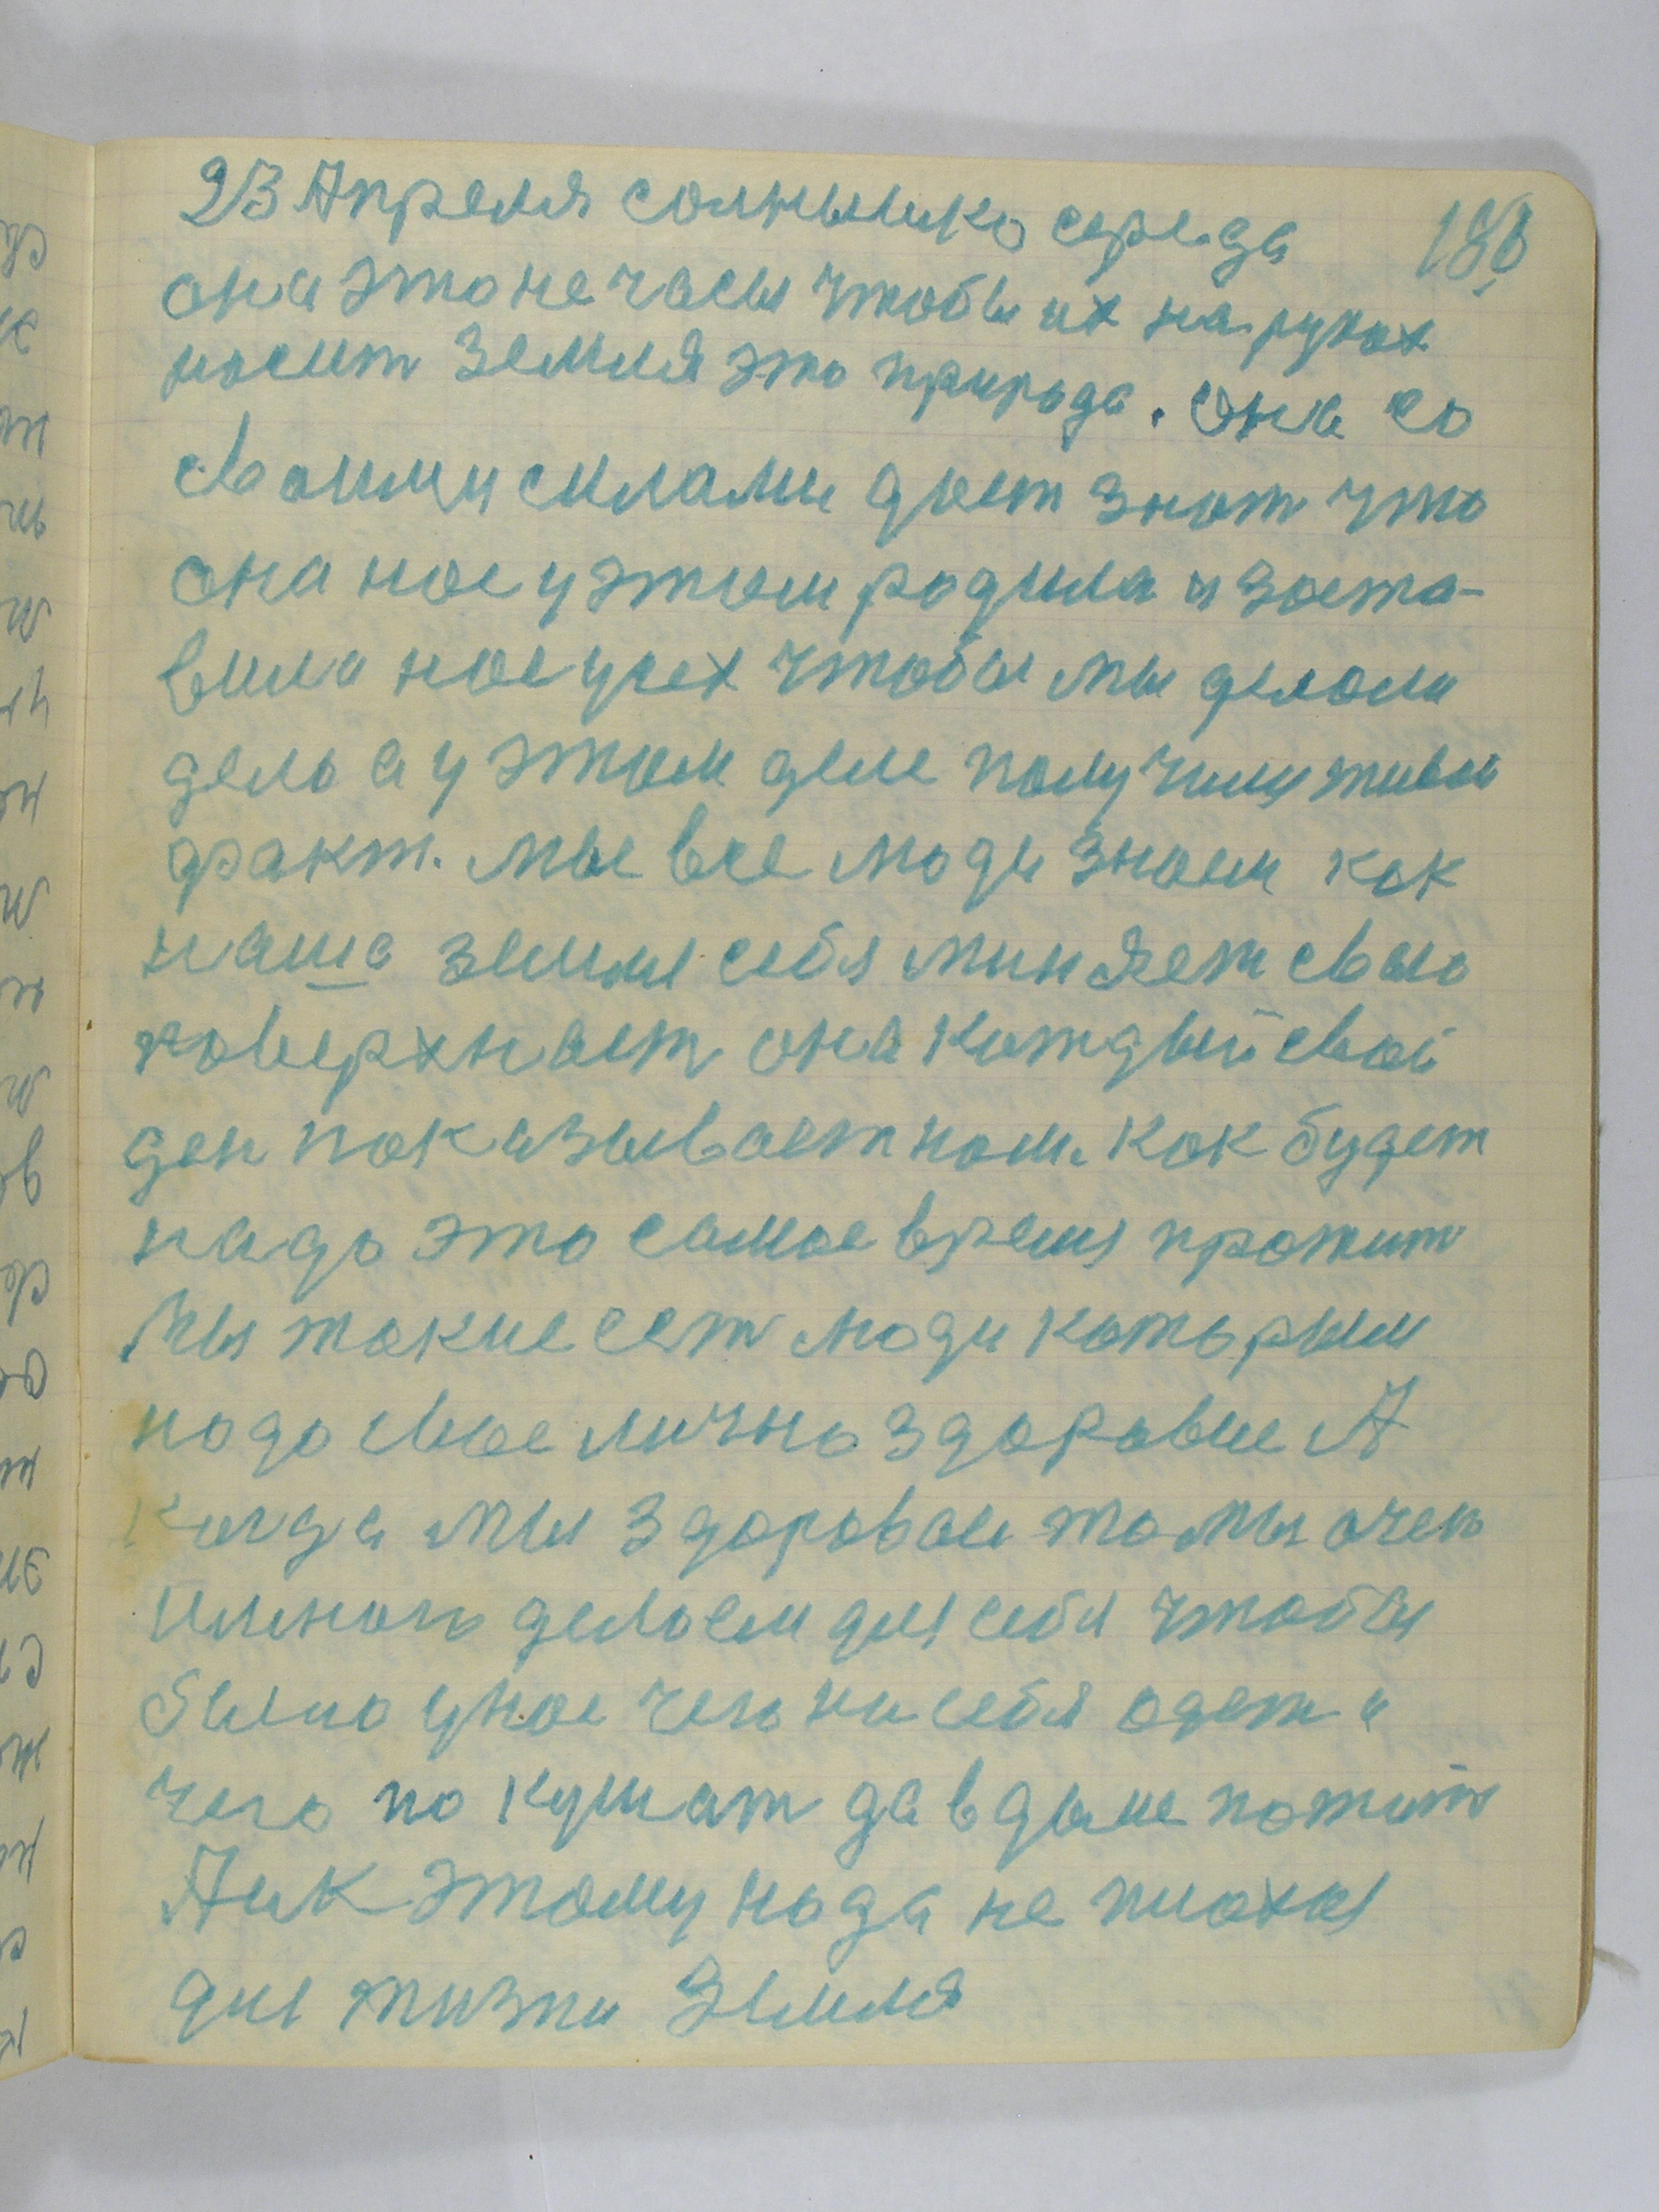 23 Апреля солнышко середа 186
она это не часы чтобы их на руках
носит Земля это природа. Она со
своими силами дает знат что
она нас у этом родила и заста-
вила нас усех чтобы мы делали
дело а у этом деле получили живы
факт. мы все люди знаем как
наша земля себя миняет свою
поверхност она каждый свой
ден показывает нам. как будет
надо это самое время прожит
Мы такие ест люди которым
надо свое лично здоровие А
когда мы здоровые то мы очен
много делаем для себя чтобы
было у нас чего на себя одет и
чего по кушат да в доме пожит
А и к этому нада не плохая
для жизни Земля